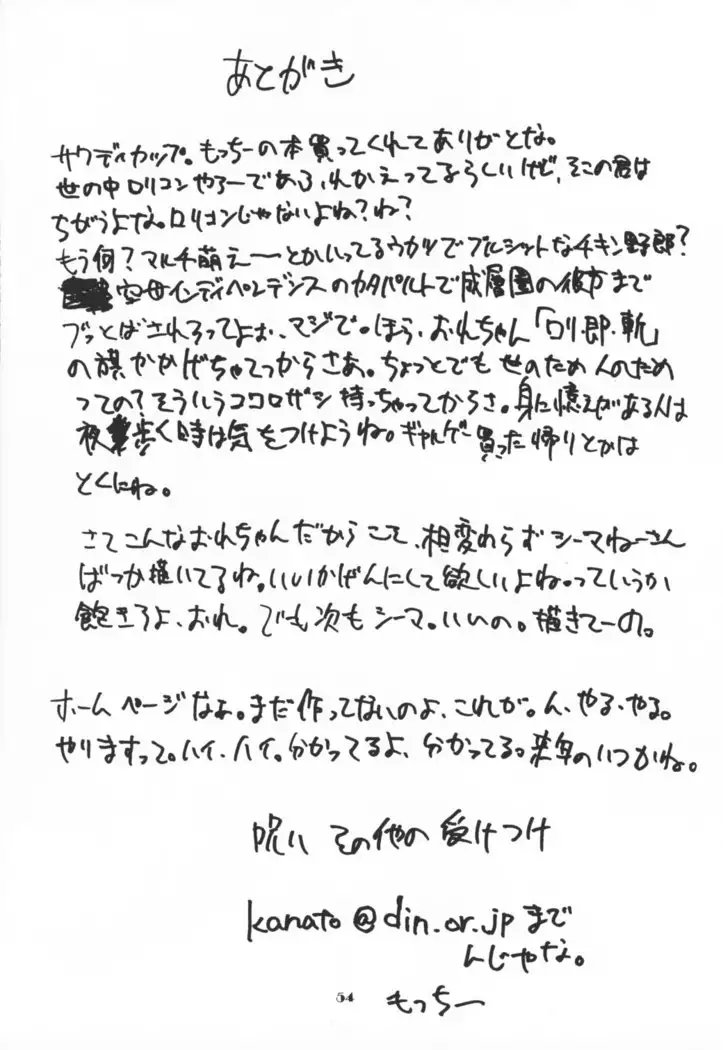 あとがき
サウディカップ。もっちーの本買ってくれてありがとな。
世の中ロリコンやろーであふれかえってるらしいけど、そこの君は
ちがうよな。ロリコンじゃないよね?ね?
もう何?マルチ萌えーとかいってるウカツでブルシットなチキン野郎?
空母インディペンデンスのカタパルトで成層圏の彼方まで
ブッとばされろってよぉ、マジで。ほら、おれちゃん「ロリ即斬」
の旗かかげちゃてっからさあ。ちょっとでも世のため人のため
つての?そういうココロザシ持っちゃってからさ。身に憶えがある人は
夜歩く時は気をつけようね。ギャルゲー買った帰りとかは
とくにね。
さてこんなおれちゃんだからこそ、相変わらずシーマねーさん
ばっか描いてるね。いいかげんにして欲しいよね。っていうか
飽きろよ、おれ。でも次もシーマ。いいの。描きてーの。
ホームページなぁ。まだ作ってないのよ、これが。ん、やる、やる。
やりますって。ハイ、ハイ。分かってるよ、分かってる。来年のいつかね。
呪い その他の受けつけ
kanato@din.or.jpまで
んじゃな。
54 もっちー